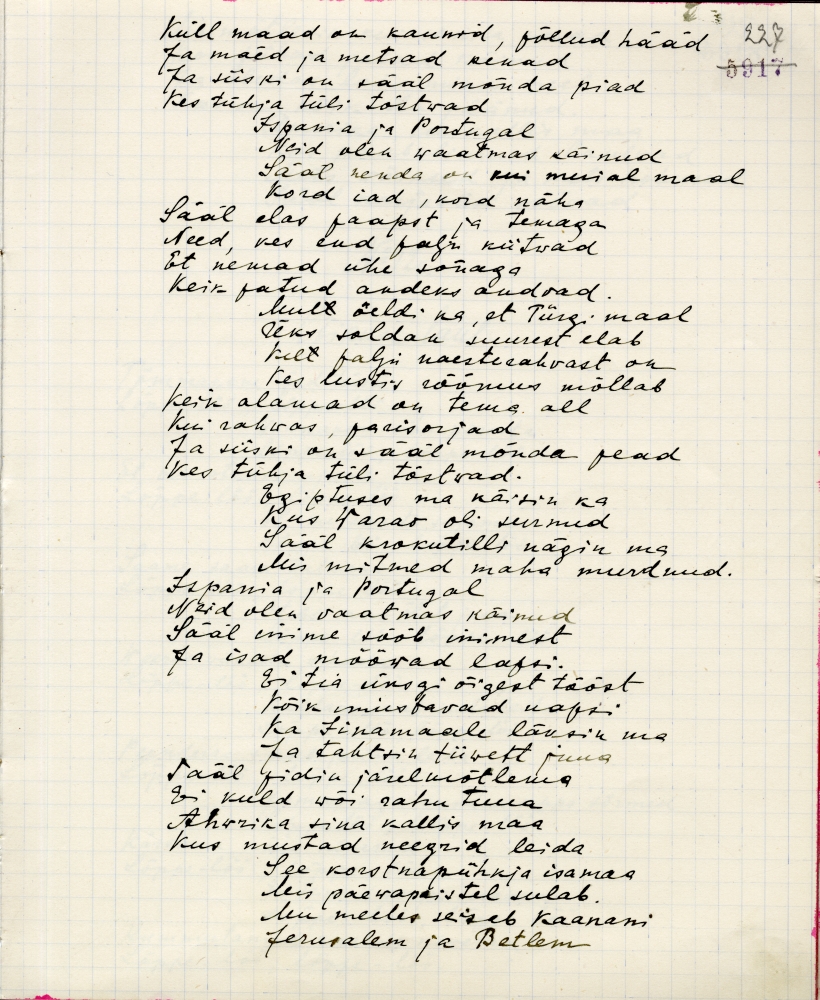 227
5917
Küll maad on kaunid, põllud hääd
Ja mäed ja metsad kenad
Ja siiski on sääl mõnda piad
Kes tühja tüli tõstwad
Ispania ja Portugal
Neid olen waatmas käinud
Sääl nenda on kui meial maal
Kord iad, kord näha
Sääl elas paapst ja temaga
Need, kes end palju kiitwad
Et nemad ühe sõnaga
Keik patud andeks andvad.
Mult öeldi ka, et Türgi maal
Üks soldan suurest elab
Kelt palju naesterahvast on
Kes lustis rõõmus möllab
Keik alamad on tema all
Kui rahwas, parisorjad
Ja siiski on sääl mõnda pead
Kes tühja tüli tõstwad.
Egiptuses ma käisin ka
Kus Warao oli surnud
Sääl krokutilli nägin ma
Mis mitmed maha murdnud.
Ispania ja Portugal
Neid olen vaatmas käinud
Sääl inime sööb inimest
Ja isad mööwad lapsi.
Ei tia üksgi õigest tööst
Kõik
Ka Iinamaale läksin ma
Ja tahtsin tiiwett juua
Sääl pidin järelmõtlema
Ei kuld wõi rahu tuua
Ahwrika sina kallis maa
Kus mustad neegrid leida
See korstnapühkja isamaa
Mis päewapaistel sulab.
Mu meeles seiseb Kaanani
Jerusalem ja Betlem